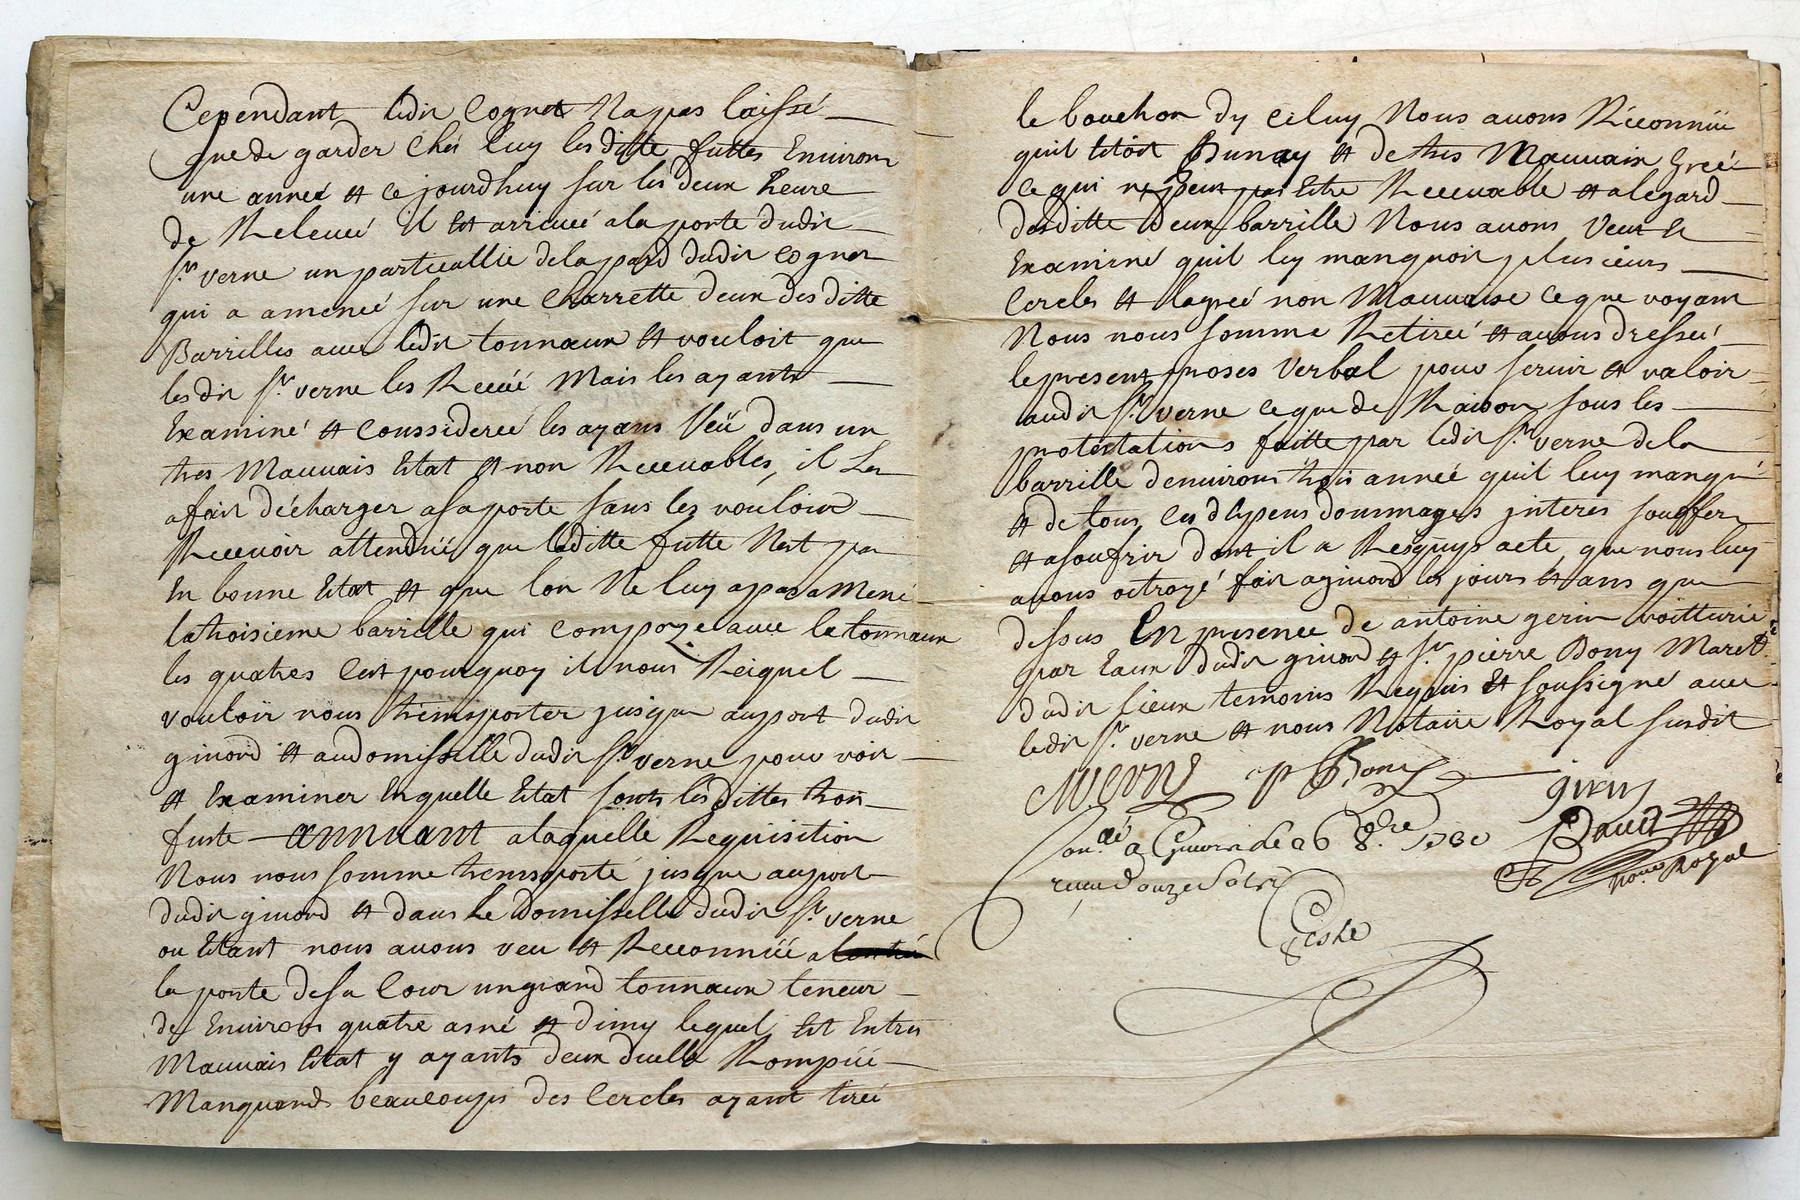 Cependant ledit Cognet Na pas laissé
que de garder Chés luy les ditte futtes Environ
une anneé et ce jourdhuy sur les deux heure
de Releueé Il Est arriueé a la porte dudit
Sr. verne un particullié de la pard dudit Cognet
qui a ameneé sur une Charrette deux des ditte
Barrilles auec ledit tonnaux et vouloit que
lesdit Sr. verne les Receué Mais les ayants
Examiné et Conssidereé les ayans Veü dans un
tres Mauuais Etat et non Receuables, il Les
a fait décharger a sa porte sans les vouloir
Receuoir attendüe que laditte futte Nest pas
En bonne Etat et que lon Ne luy a pas a Mené
la troisieme barrielle qui compoze auec le tonnaux
les quatres C'est pourquoy il nous Reiquel
vouloir nous trensporter jusque au port dudit
giuord et au domisselle dudit Sr. verne pour voir
et Examiner En quelle Etat sonts les dittes trois
futte annuant a laquelle Requisition
Nous nous somme trensporté jusque au port
dudit giuord et dans Le Domisselle dudit Sr. verne
ou Etant nous auons veu et Reconnüe a
la porte de sa Cour un grand tonnaux teneur
de Enuiron quatre asné et dimy lequel Est En tres
Mauuais Etat y ayants deux duelle Rompüe
Manquands beaucoups des Cercles ayant tireé
le bouchon dy Celuy Nous auons Réconnüe
quil Etoit Punay et de tres Mauuais Greé
Ce qui ne peut pas Etre Receuable et a legard
des ditte deux barrille Nous auons Veut et
Examiné quil ley manquoit plusieurs
Cercles et lagreé non Mauuaise Ce que voyant
Nous nous somme Retireé et auons dresseé
le present proses Verbal pour seruir et valoir
audit Sr. verne ce que de Raison sous les
protestations faitte par ledit Sr. verne de la
barrille denuirons trois anneé quil luy manque
et de tous les depens dommages jnteres souffer
et a soufrir dont il a Resquys acte, que nous luy
auons octroyé fait a giuord les jours et ans que
dessus En presence de antoine gerin voitturie
par Eaux dudit giuord et Sr. pierre Bony Mared.
dudit lieux temoins Requis et soussigné auec
ledit Sr. verne et nous Notaire Royal susdit
Verne p Bony girin
Con.lé a Giuors le 26 8.bre 1780 David
receu douze sols no.re Royal
Teste